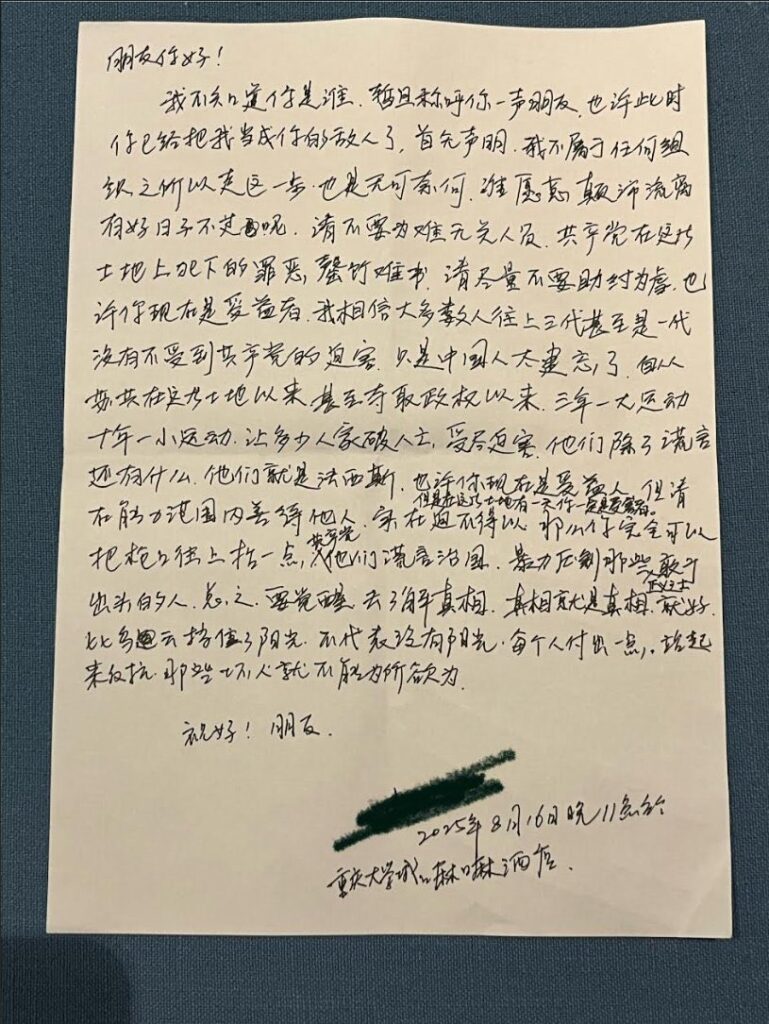 朋友你好！
我不知道你是谁、暂且称呼你一声朋友、也许此时
你已给把我当成你的敌人了，首先声明、我不属于任何组
织之所以走这一步、也是无可奈何、谁愿意颠沛流离
有好日子不过呢、请不要为难无关人员、共产党在这片
土地上犯下的罪恶，罄竹难书、请尽量不要助纣为虐、也
许你现在是受益者、我相信大多数人往上三代甚至是一代
没有不受到共产党的迫害、只是中国人太健忘了、自从
苏共在这片土地以来、甚至夺取政权以来、三年一大运动
十年一小运动、让多少人家破人亡、受尽迫害、他们除了谎言
还有什么、他们就是法西斯、也许你现在是受益人、但请
但是在这片土地有一天你一定是受害者。
在能力范围内善待他人、实在迫不得以、那么你完全可以
把枪口往上抬一点，共产党他们谎言治国、暴力压制那些敢于
正义之士
出头的人、总之、要觉醒、去了解真相、真相就是真相、就好
比乌云挡住了阳光、不代表没有阳光、每个人付出一点，站起
来反抗、那些坏人就不能为所欲为、
祝好！朋友、
2025年8月16日晚11点于
重庆大学城
酒店、